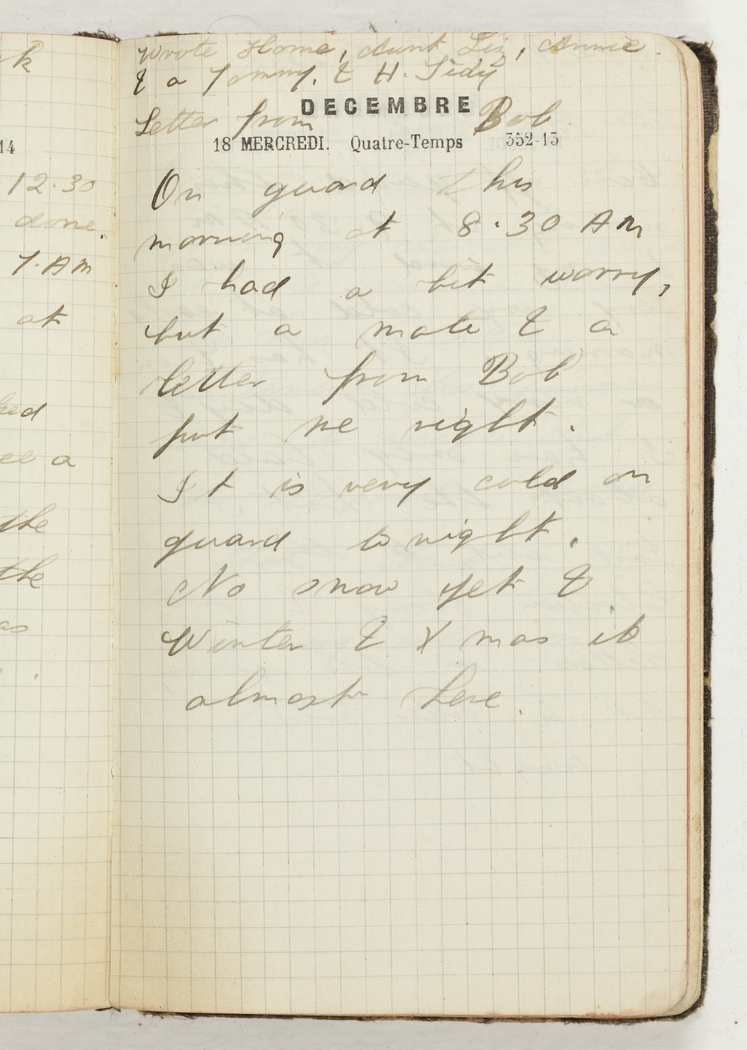 Wrote Home, Aunt Liz, Annie
& a Tommy. & H. Tidy
DECEMBRE
Letter from Bob
18 MERCREDI. Quatre-Temps 352-13
On guard this
morning at 8.30 AM
I had a bit worry,
but a mate & a
letter from Bob
put me right.
It is very cold on
guard to night.
No snow yet &
Winter & Xmas is
almost here.
14
12.30
done.
7.AM
at
ee a
the
the